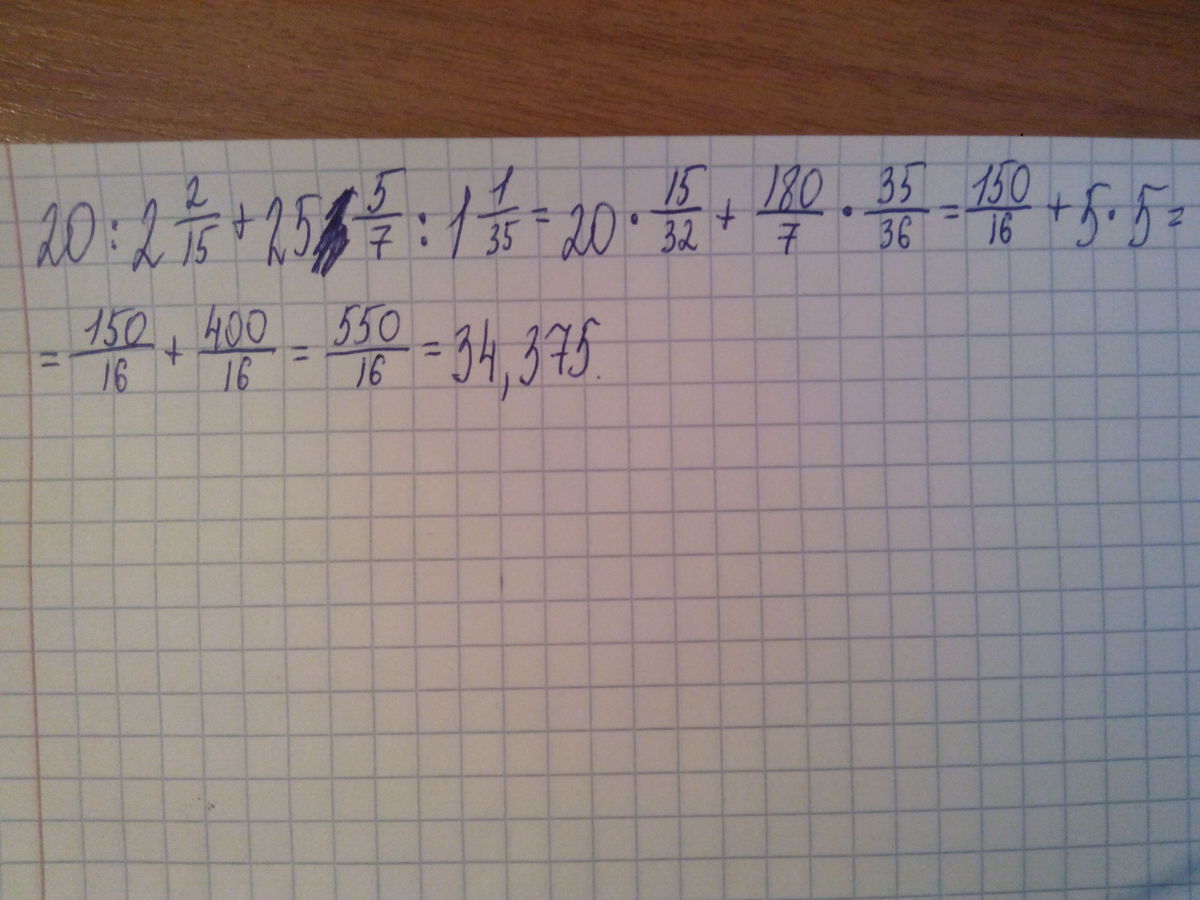 20 : 2 2/15 + 25 5/7 : 1 1/35 = 20 · 15/32 + 180/7 · 35/36 = 150/16 + 5 · 5 =
= 150/16 + 400/16 = 550/16 = 34,375.